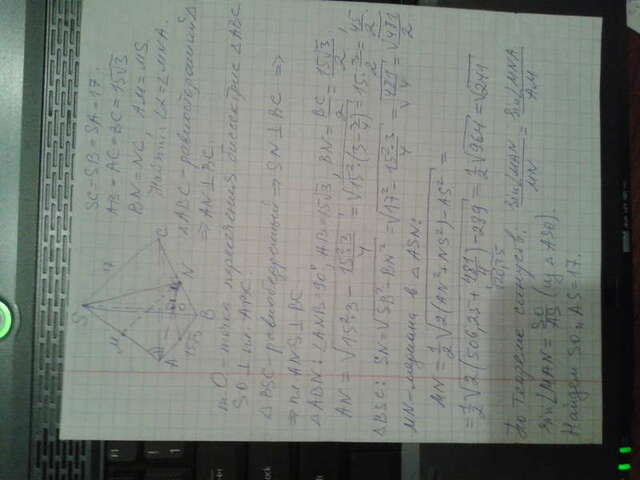 S
17
M
C
A
O
N
15√3
B
SC=SB=SA=17.
AB=AC=BC=15√3
BN=NC, AM=MS
Найти: ∠α=∠MNA.
△ABC-равносторонний
⇒AN⊥BC.
т.O-точка пересечения биссектрис △ABC
SO⊥пл.ABC.
△BSC-равнобедренный⇒SN⊥BC ⇒
⇒пл ANS⊥BC
△ABN: ∠ANB=90°, AB=15√3, BN=BC/2=15√3/2,
AN=√(15²·3-15²·3/4)=√(15²(3-3/4))=15·3/2=45/2
△BSC: SN=√(SB²-BN²)=√(17²-15²·3/4)=√(481/4)=√481/2
MN-медиана в △ASN:
AN=1/2√(2(AN²+NS²)-AS²)=
=1/2√(2(506,25+481/4)-289)=1/2√964=√241
120,25
По теореме синусов: Sin∠MAN/MN=Sin∠MNA/AM
Sin∠MAN=SO/AS (из △ASO).
Найдем SO, AS=17.